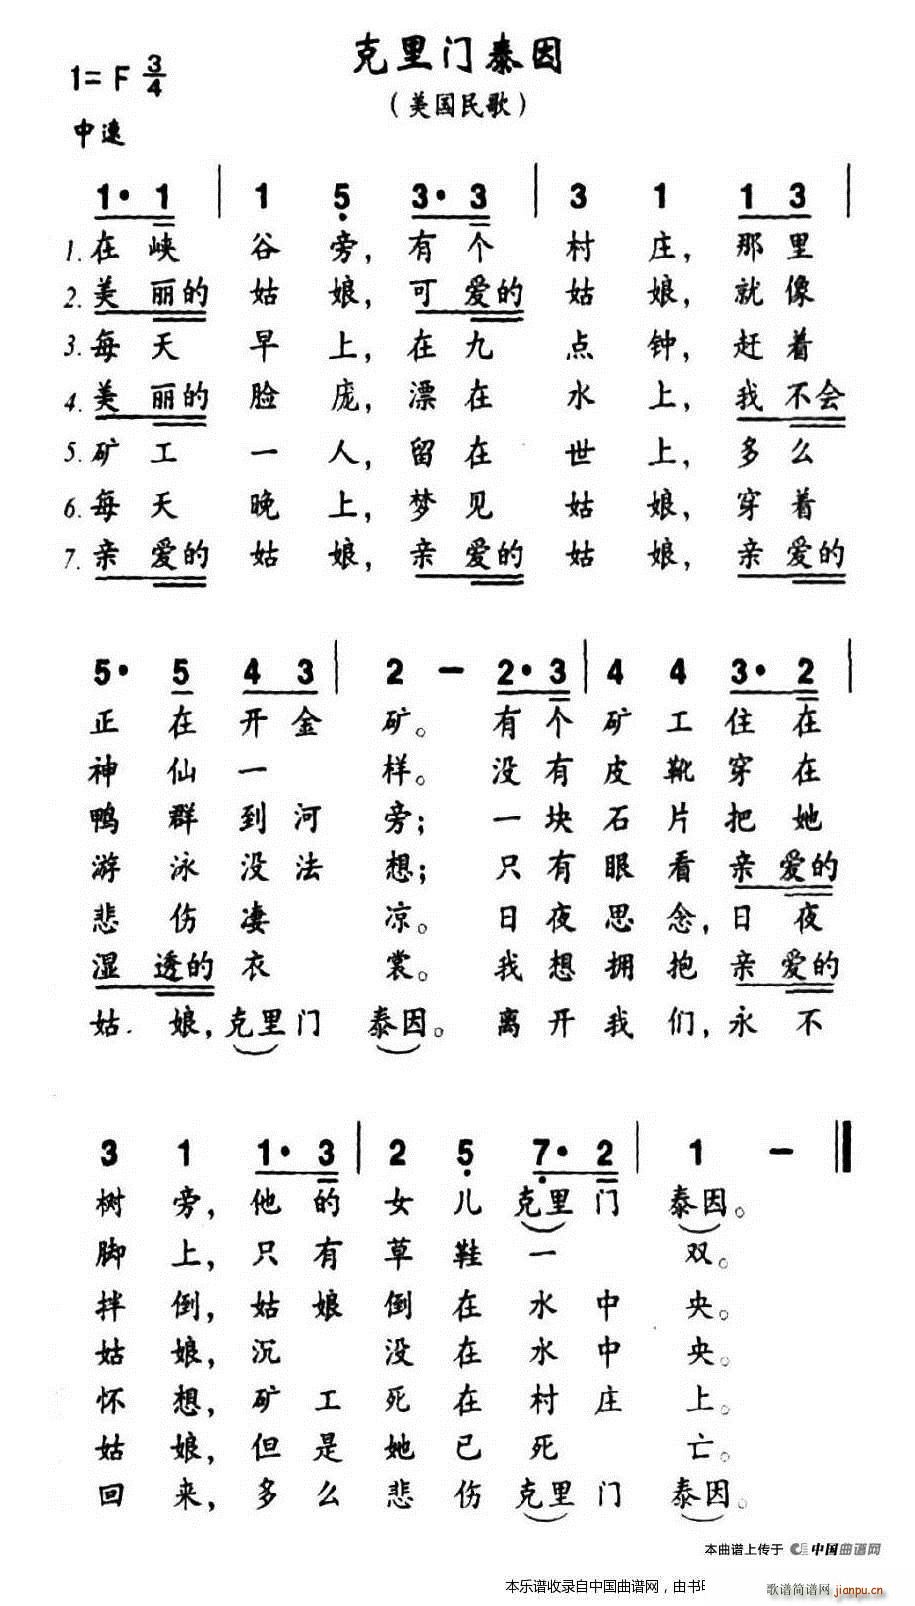 克里门泰因
1=F 3/4
（美国民歌）
中速
1· 1 | 1 5 3· 3 | 3 1 1 3 |
1.在峡谷旁，有个村庄，那里
2.美丽的姑娘，可爱的姑娘，就像
3.每天早上，在九点钟，赶着
4.美丽的脸庞，漂在水上，我不会
5.矿工一人，留在世上，多么
6.每天晚上，梦见姑娘，穿着
7.亲爱的姑娘，亲爱的姑娘，亲爱的
5· 5 4 3 | 2 － 2· 3 | 4 4 3· 2 |
正在开金矿。有个矿工住在
神仙一样。没有皮靴穿在
鸭群到河旁；一块石片把她
游泳没法想；只有眼看亲爱的
悲伤凄凉。日夜思念，日夜
湿透的衣裳。我想拥抱亲爱的
姑.娘，克里门泰因。离开我们，永不
3 1 1· 3 | 2 5 7· 2 | 1 － ‖
树旁，他的女儿克里门泰因。
脚上，只有草鞋一双。
拌倒，姑娘倒在水中央。
姑娘，沉没在水中央。
怀想，矿工死在村庄上。
姑娘，但是她已死亡。
回来，多么悲伤克里门泰因。
本曲谱上传于 中国曲谱网
本乐谱收录自中国曲谱网，由书
歌谱简谱网 jianpu.cn